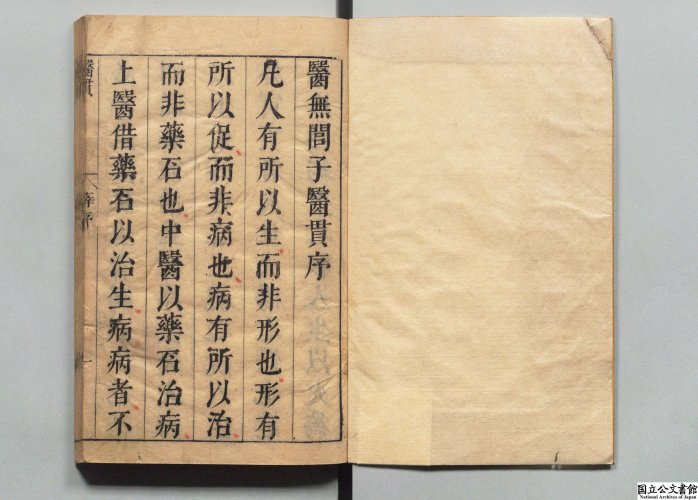 醫無閭子醫貫序
凡人有所以生而非形也形有
所以促而非病也病有所以治
而非藥石也中醫以藥石治病
上醫借藥石以治生病病者不
醫貫
序
一
国立公文書館
National Archives of Japan